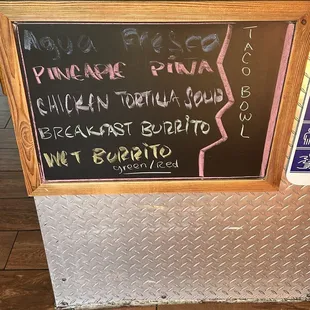 Agua Fresco
PINEAPLE PIÑA
CHICKEN TORTILLA SOUP
BREAKFAST BURRITO
WET BURRITO
green/RED
TACO BOWL